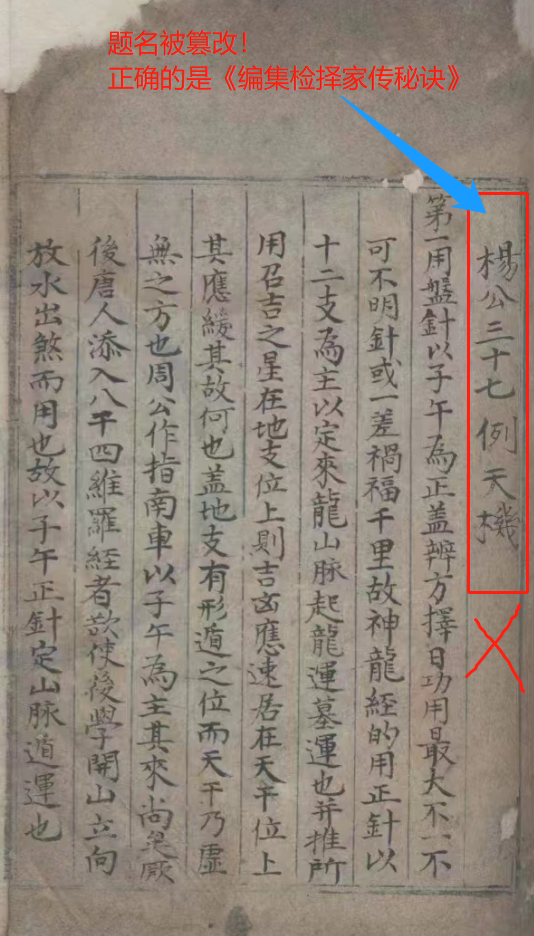 题名被篡改！
正确的是《编集检择家传秘诀》
楊公三十七例天機
第一用盤針以子午為正蓋辨方擇日功用最大不一不
可不明針或一差禍福千里故神龍經的用正針以
十二支為主以定來龍山脉起龍運墓運也并推所
用召吉之星在地支位上則吉凶應速居在天干位上
其應緩其故何也盖地支有形遁之位而天干乃虛
無之方也周公作指南車以子午為主其來尚矣厥
後唐人添入八干四維羅經者欲使後學開山立向
放水出煞而用也故以子午正針定山脉遁運也